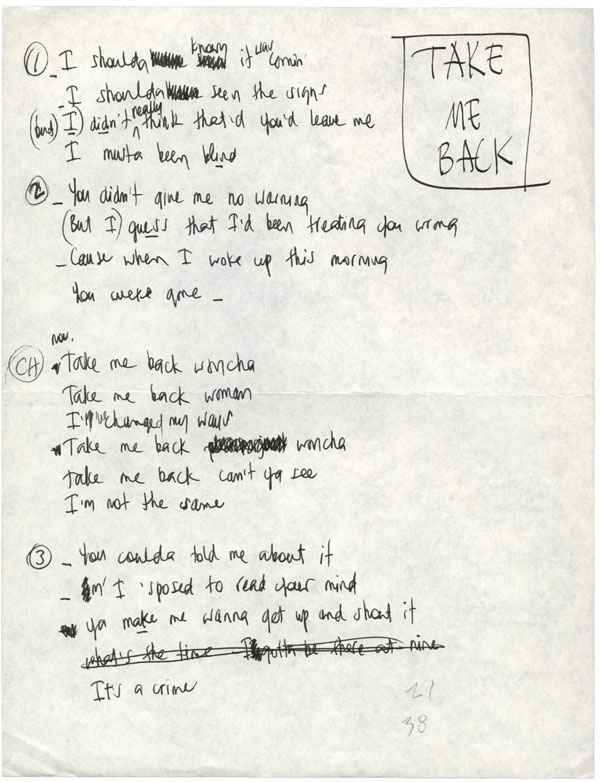 TAKE
ME
BACK
① I shoulda known it was comin'
I shoulda seen the signs
(but) I) didn't really think that'd you'd leave me
I musta been blind
② You didn't give me no warning
(But I) guess that I'd been treating you wrong
Cause when I woke up this morning
You were gone
now.
CH Take me back woncha
Take me back woman
I've changed my ways
Take me back woncha
take me back can't ya see
I'm not the same
③ You coulda told me about it
I 'sposed to read your mind
Ya make me wanna get up and shout it
what's the time I gotta be there at nine
It's a crime
21
38